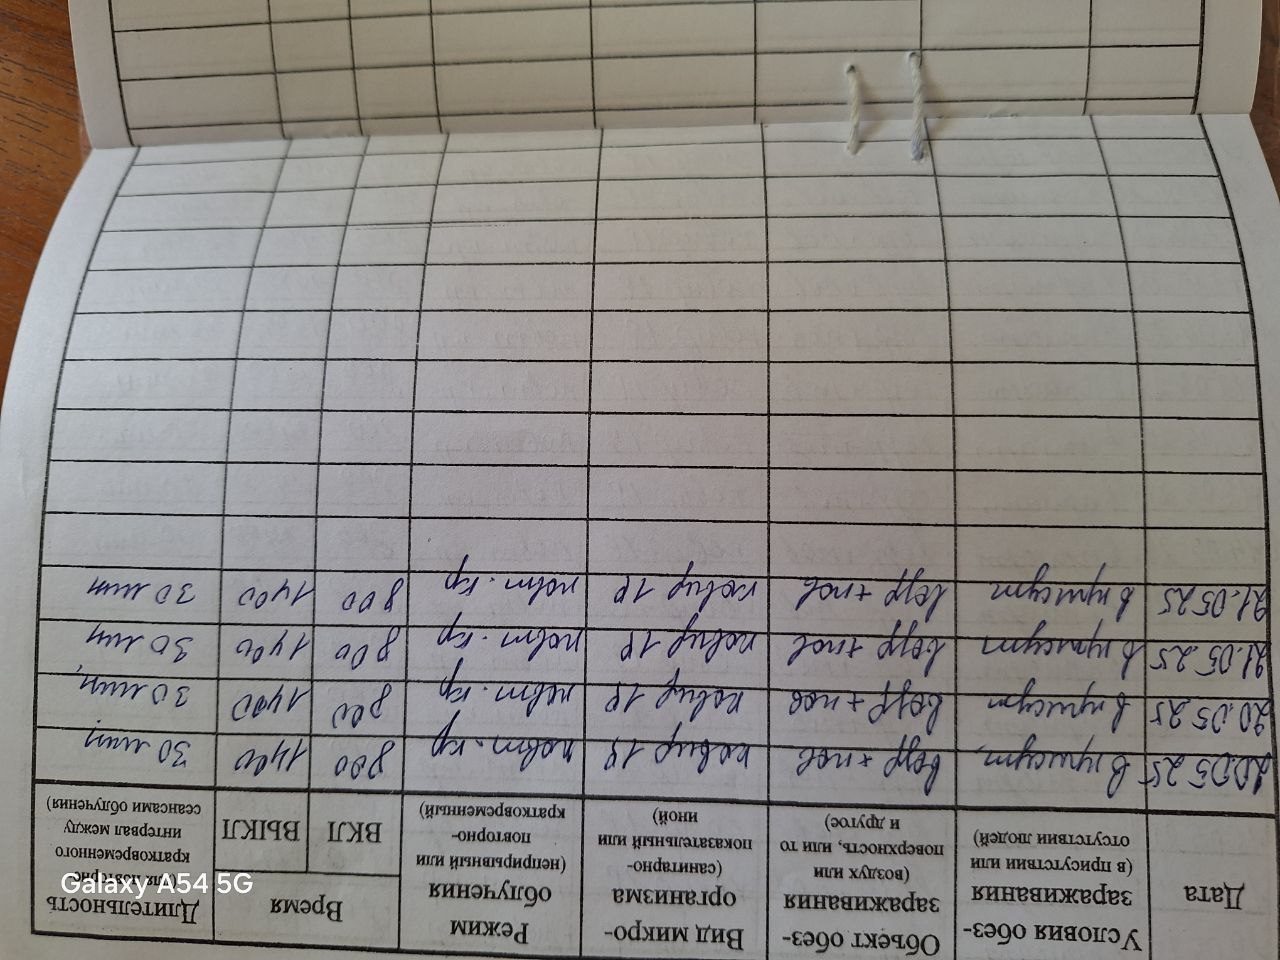 Дата
Условия обез-
зараживания
(в присутствии или
отсутствии людей)
Объект обез-
зараживания
(воздух или
поверхность, или то
и другое)
Вид микро-
организма
(санитарно-
показательный или
иной)
Режим
облучения
(неприрывный или
повторно-
кратковременный)
Время
ВКЛ
ВЫКЛ
Длительность
кратковременного
интервал между
сеансами облучения)
20.05 25 В присут. возд + пов ковид 19 повт. кр 800 1400 30 мин
20.05 25 В присут возд + пов ковид 19 повт. кр 800 1400 30 мин,
21.05.25 В присут возд + пов ковид 19 повт. кр 800 1400 30 мин
21.05 25 В присут возд + пов ковид 19 повт. кр 800 1400 30 мин
Galaxy A54 5G